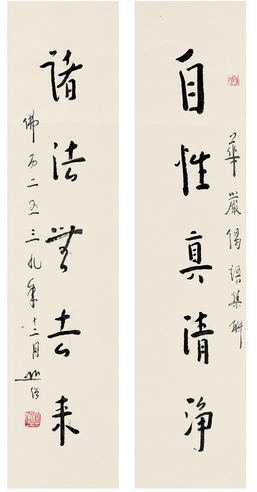 華嚴偈語集聯
自性真清淨
諸法無去來
佛曆二五三九年十二月